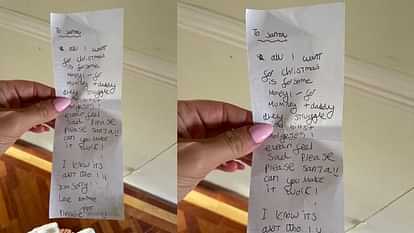 To Santa
all I want
for christmas
is for some
money - for
mumey + daddy
they struggle
with bills +
morgeses !
even feel
sad Please
Please santa !!
can you make
it work !
I know it's
alot tho !!
I'm sorry !
love some
Please
To Santa
all I want
for christmas
is for some
money - for
mumey + daddy
they struggle
with bills +
morgeses !
even feel
sad Please
Please santa !!
can you make
it work !
I know it's
alot tho !!